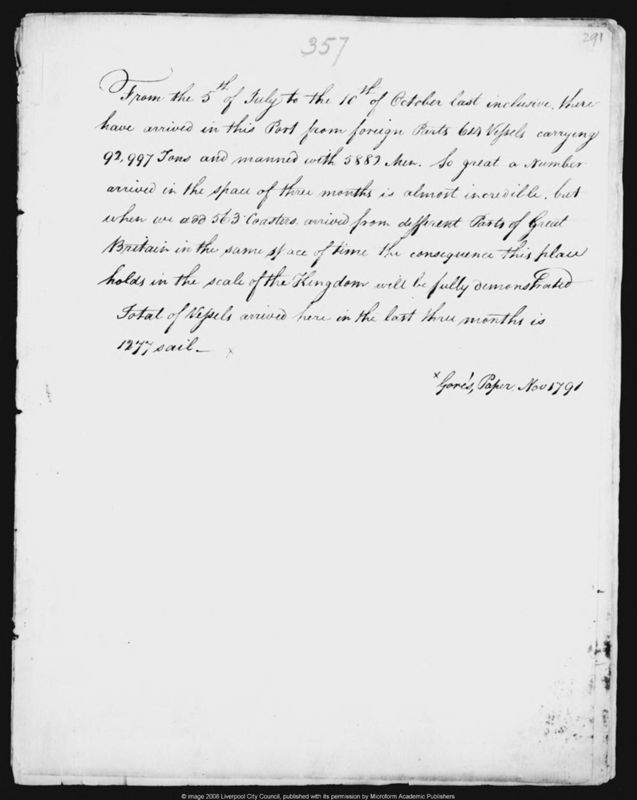 357
291
From the 5th of July to the 10th of October last inclusive, there
have arrived in this Port from foreign Parts 614 Veſsels carrying
92,997 Tons and manned with 5882 Men. So great a Number
arrived in the space of three months is almost incredible, but
when we add 563 Coasters arrived from different Parts of Great
Britain in the same space of time the consequence this place
holds in the scale of the Kingdom will be fully demonstrated
Total of Veſsels arrived here in the last three months is
1277 sail_ x
x Gore's, Paper, Nov 1791
© image 2008 Liverpool City Council, published with its permission by Microform Academic Publishers